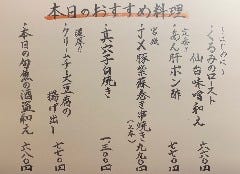 本日のおすすめ料理
くるみのロースト
仙台味噌和え 六六〇円
定番!!
あん肝ポン酢 七七〇円
宮城
JX豚紫蘇巻き串焼き(二本) 九九〇円
真穴子白焼き 一三〇〇円
濃厚!!
クリームチーズ豆腐の
揚げ出し 七七〇円
本日の旬魚の酒盗和え 六八〇円